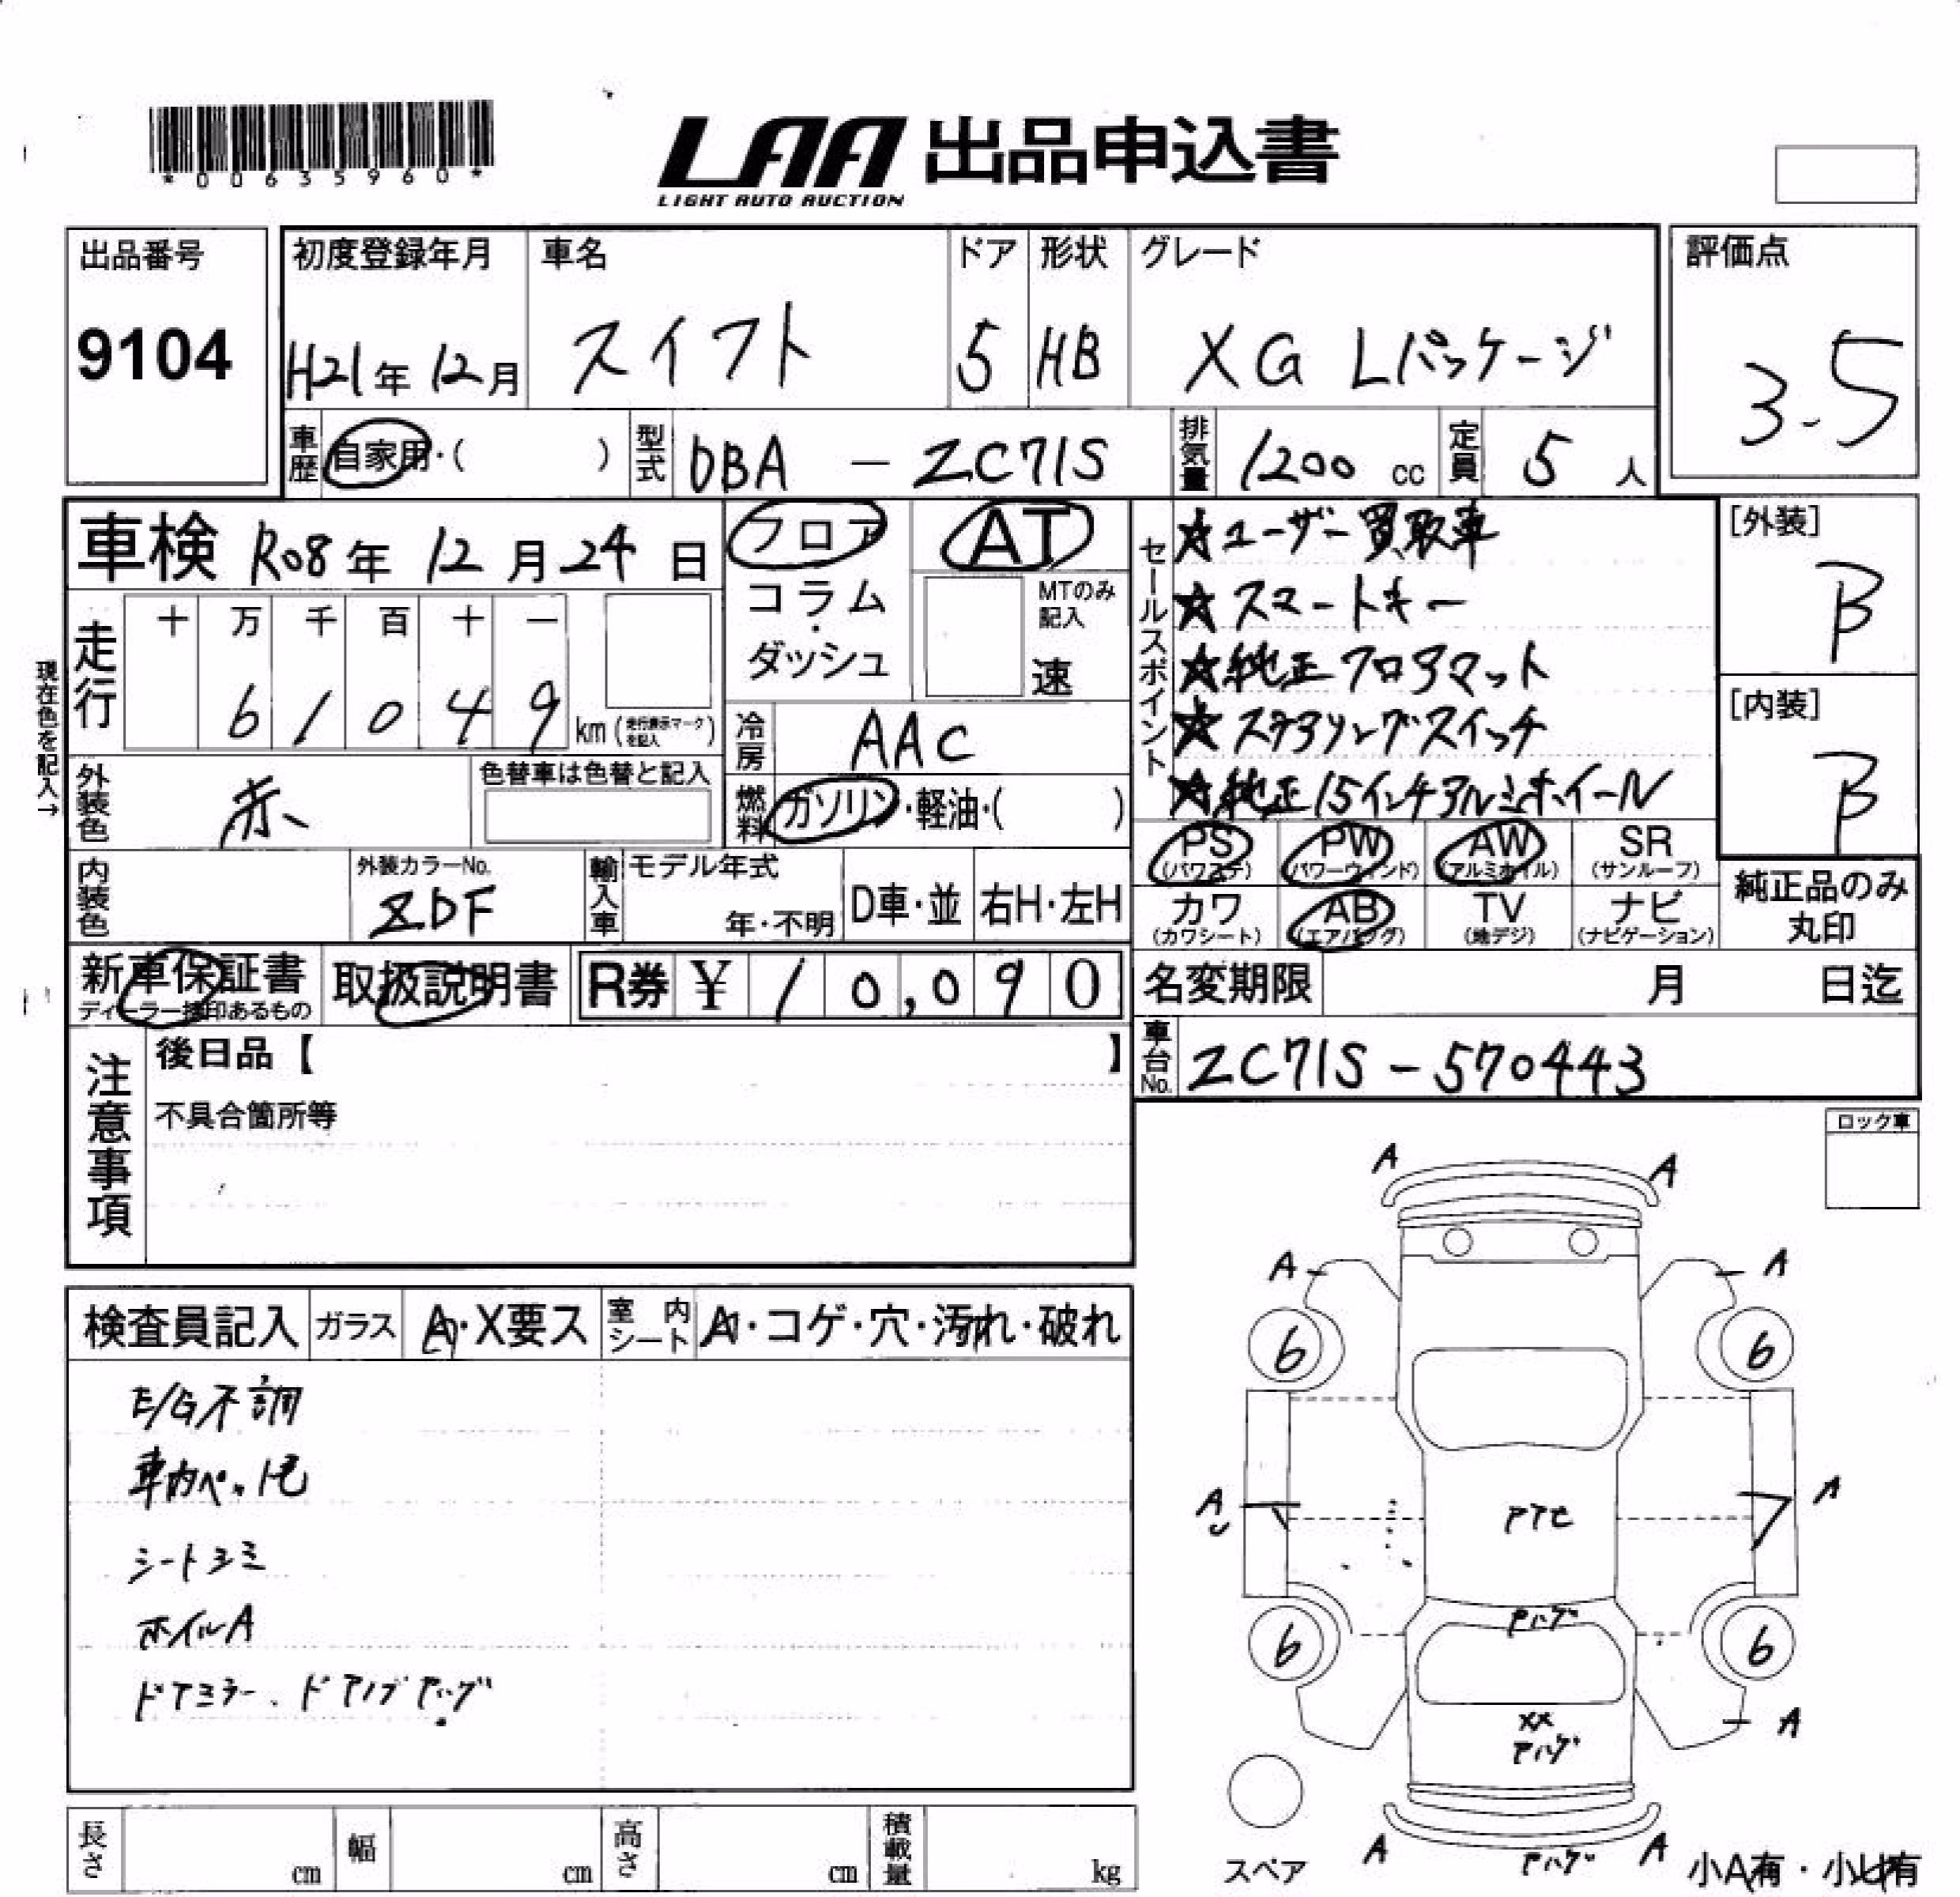 *00635960*
LAA 出品申込書
LIGHT AUTO AUCTION
出品番号
9104
初度登録年月
H21年 12月
車名
スイフト
ドア
5
形状
HB
グレード
XG Lパッケージ
評価点
3.5
車歴 自家用・( )
型式 DBA - ZC71S
排気量 1200 cc
定員 5 人
車検 R08年 12月 24日
フロア
コラム・ダッシュ
AT
MTのみ記入
速
セールスポイント
★ユーザー買取車
★スマートキー
★純正フロアマット
★ステアリングスイッチ
★純正15インチアルミホイール
[外装]
B
[内装]
B
現在色を記入→
走行
十 万 千 百 十 一
6 1 0 4 9 km (走行表示マークを記入)
冷房 AAC
外装色 赤
色替車は色替と記入
燃料 ガソリン・軽油・( )
PS (パワステ)
PW (パワーウィンド)
AW (アルミホイル)
SR (サンルーフ)
カワ (カワシート)
AB (エアバッグ)
TV (地デジ)
ナビ (ナビゲーション)
純正品のみ丸印
内装色
外装カラーNo.
ZDF
輸入車
モデル年式
年・不明
D車・並
右H・左H
新車保証書
ディーラー捺印あるもの
取扱説明書
R券 ¥ 10,090
名変期限 月 日迄
車台No. ZC71S-570443
注意事項
後日品【 】
不具合箇所等
ロック車
検査員記入
ガラス A・X要ス
室内シート A・コゲ・穴・汚れ・破れ
E/G不調
車内ペット毛
シートシミ
ホイルA
ドアミラー、ドアノブ アハゲ
A A
A A
6 6
A A
アアセ
アハゲ
6 6
XX
アハゲ
A
A A
アハゲ
スペア
小A有・小U有
長さ cm
幅 cm
高さ cm
積載量 kg